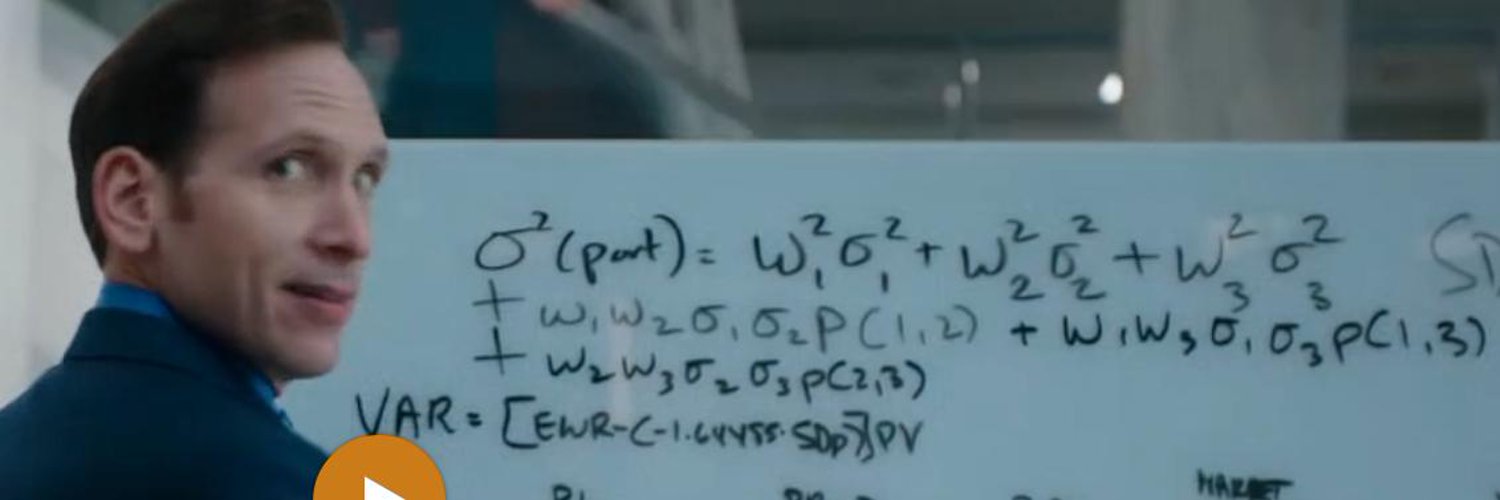 σ²(port) = W₁²σ₁² + W₂²σ₂² + W₃²σ₃²
+ W₁W₂σ₁σ₂ρ(1,2) + W₁W₃σ₁σ₃ρ(1,3)
+ W₂W₃σ₂σ₃ρ(2,3)
VAR = [EWR-(-1.64455·SDp)]PV
MARKET